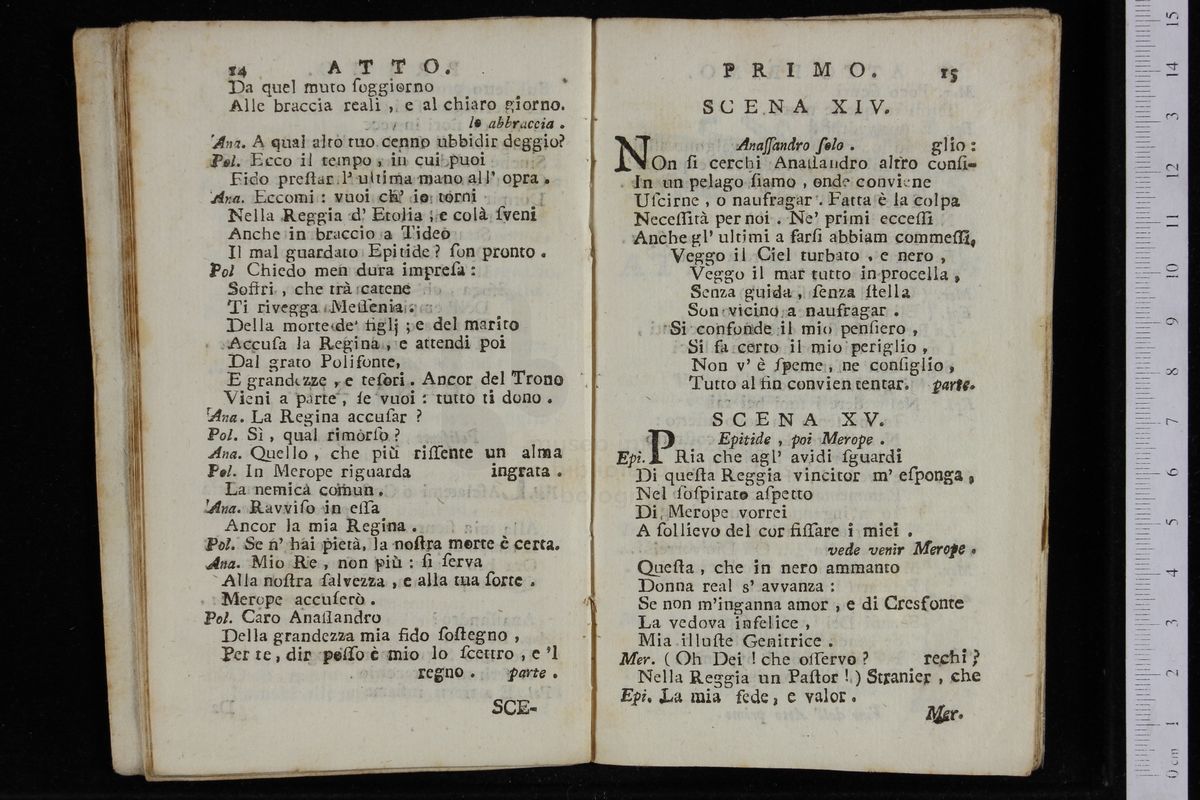 14 ATTO.
Da quel muto ſoggiorno
Alle braccia reali , e al chiaro giorno.
lo abbraccia .
Ana. A qual alto tuo cenno ubbidir deggio?
Pol. Ecco il tempo , in cui puoi
Fido preſtar l' ultima mano all' opra .
Ana. Eccomi : vuoi ch' io torni
Nella Reggia d' Etolia , e colà ſveni
Anche in braccio a Tideo
Il mal guardato Epitide ? ſon pronto .
Pol Chiedo men dura impreſa :
Soffri , che trà catene
Ti rivegga Meſſenia .
Della morte de' figlj ; e del marito
Accuſa la Regina , e attendi poi
Dal grato Polifonte,
E grandezze , e teſori . Ancor del Trono
Vieni a parte , ſe vuoi : tutto ti dono .
Ana. La Regina accuſar ?
Pol. Sì , qual rimorſo ?
Ana. Quello , che più riſſente un alma
Pol. In Merope riguarda ingrata .
La nemica comun .
Ana. Ravviſo in eſſa
Ancor la mia Regina .
Pol. Se n' hai pietà, la noſtra morte è certa.
Ana. Mio Re , non più : ſi ſerva
Alla noſtra ſalvezza , e alla tua ſorte .
Merope accuſerò .
Pol. Caro Anaſſandro
Della grandezza mia fido ſoſtegno ,
Per te , dir poſſo è mio lo ſcettro , e 'l
regno . parte .
SCE-
PRIMO. 15
SCENA XIV.
Anaſſandro ſolo . glio :
NOn ſi cerchi Anaſſandro altro conſi-
In un pelago ſiamo , onde conviene
Uſcirne , o naufragar . Fatta è la colpa
Neceſſità per noi . Ne' primi ecceſſi
Anche gl' ultimi a farſi abbiam commeſſi,
Veggo il Ciel turbato , e nero ,
Veggo il mar tutto in procella ,
Senza guida , ſenza ſtella
Son vicino a naufragar .
Si confonde il mio penſiero ,
Si fa certo il mio periglio ,
Non v' è ſpeme , ne conſiglio ,
Tutto al fin convien tentar. parte.
SCENA XV.
Epitide , poi Merope .
Epi. PRia che agl' avidi ſguardi
Di queſta Reggia vincitor m' eſponga ,
Nel ſoſpirato aſpetto
Di Merope vorrei
A ſollievo del cor fiſſare i miei .
vede venir Merope .
Queſta , che in nero ammanto
Donna real s' avvanza :
Se non m'inganna amor , e di Cresfonte
La vedova infelice ,
Mia illuſte Genitrice .
Mer. ( Oh Dei ! che oſſervo ? rechi ?
Nella Reggia un Paſtor ! ) Stranier , che
Epi. La mia fede, e valor .
Mer.
15
14
13
12
11
10
9
8
7
6
5
4
3
2
1
0 cm